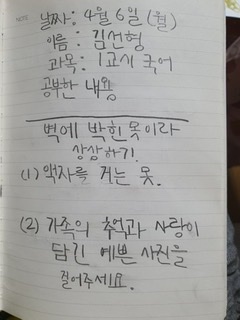 NOTE
날짜: 4월 6일 (월)
이름: 김선형
과목: 1교시 국어
공부한 내용
벽에 박힌 못이라
상상하기.
(1) 액자를 거는 못.
(2) 가족의 추억과 사랑이
담긴 예쁜 사진을
걸어주세요.